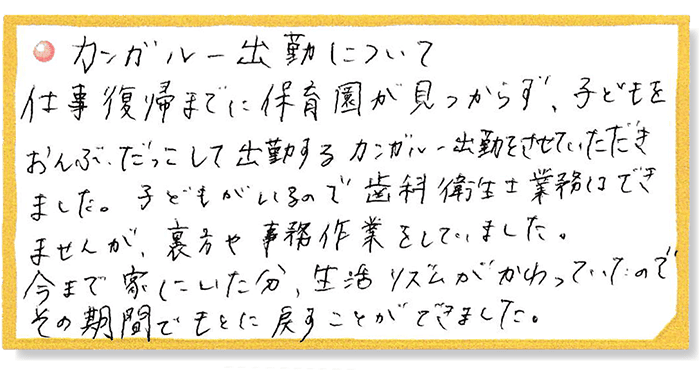 カンガルー出勤について
仕事復帰までに保育園が見つからず、子どもを
おんぶ、だっこして出勤するカンガルー出勤をさせていただき
ました。子どもがいるので歯科衛生士業務はでき
ませんが、裏方や事務作業をしていました。
今まで家にいた分、生活リズムがかわっていたので
その期間でもとに戻すことができました。